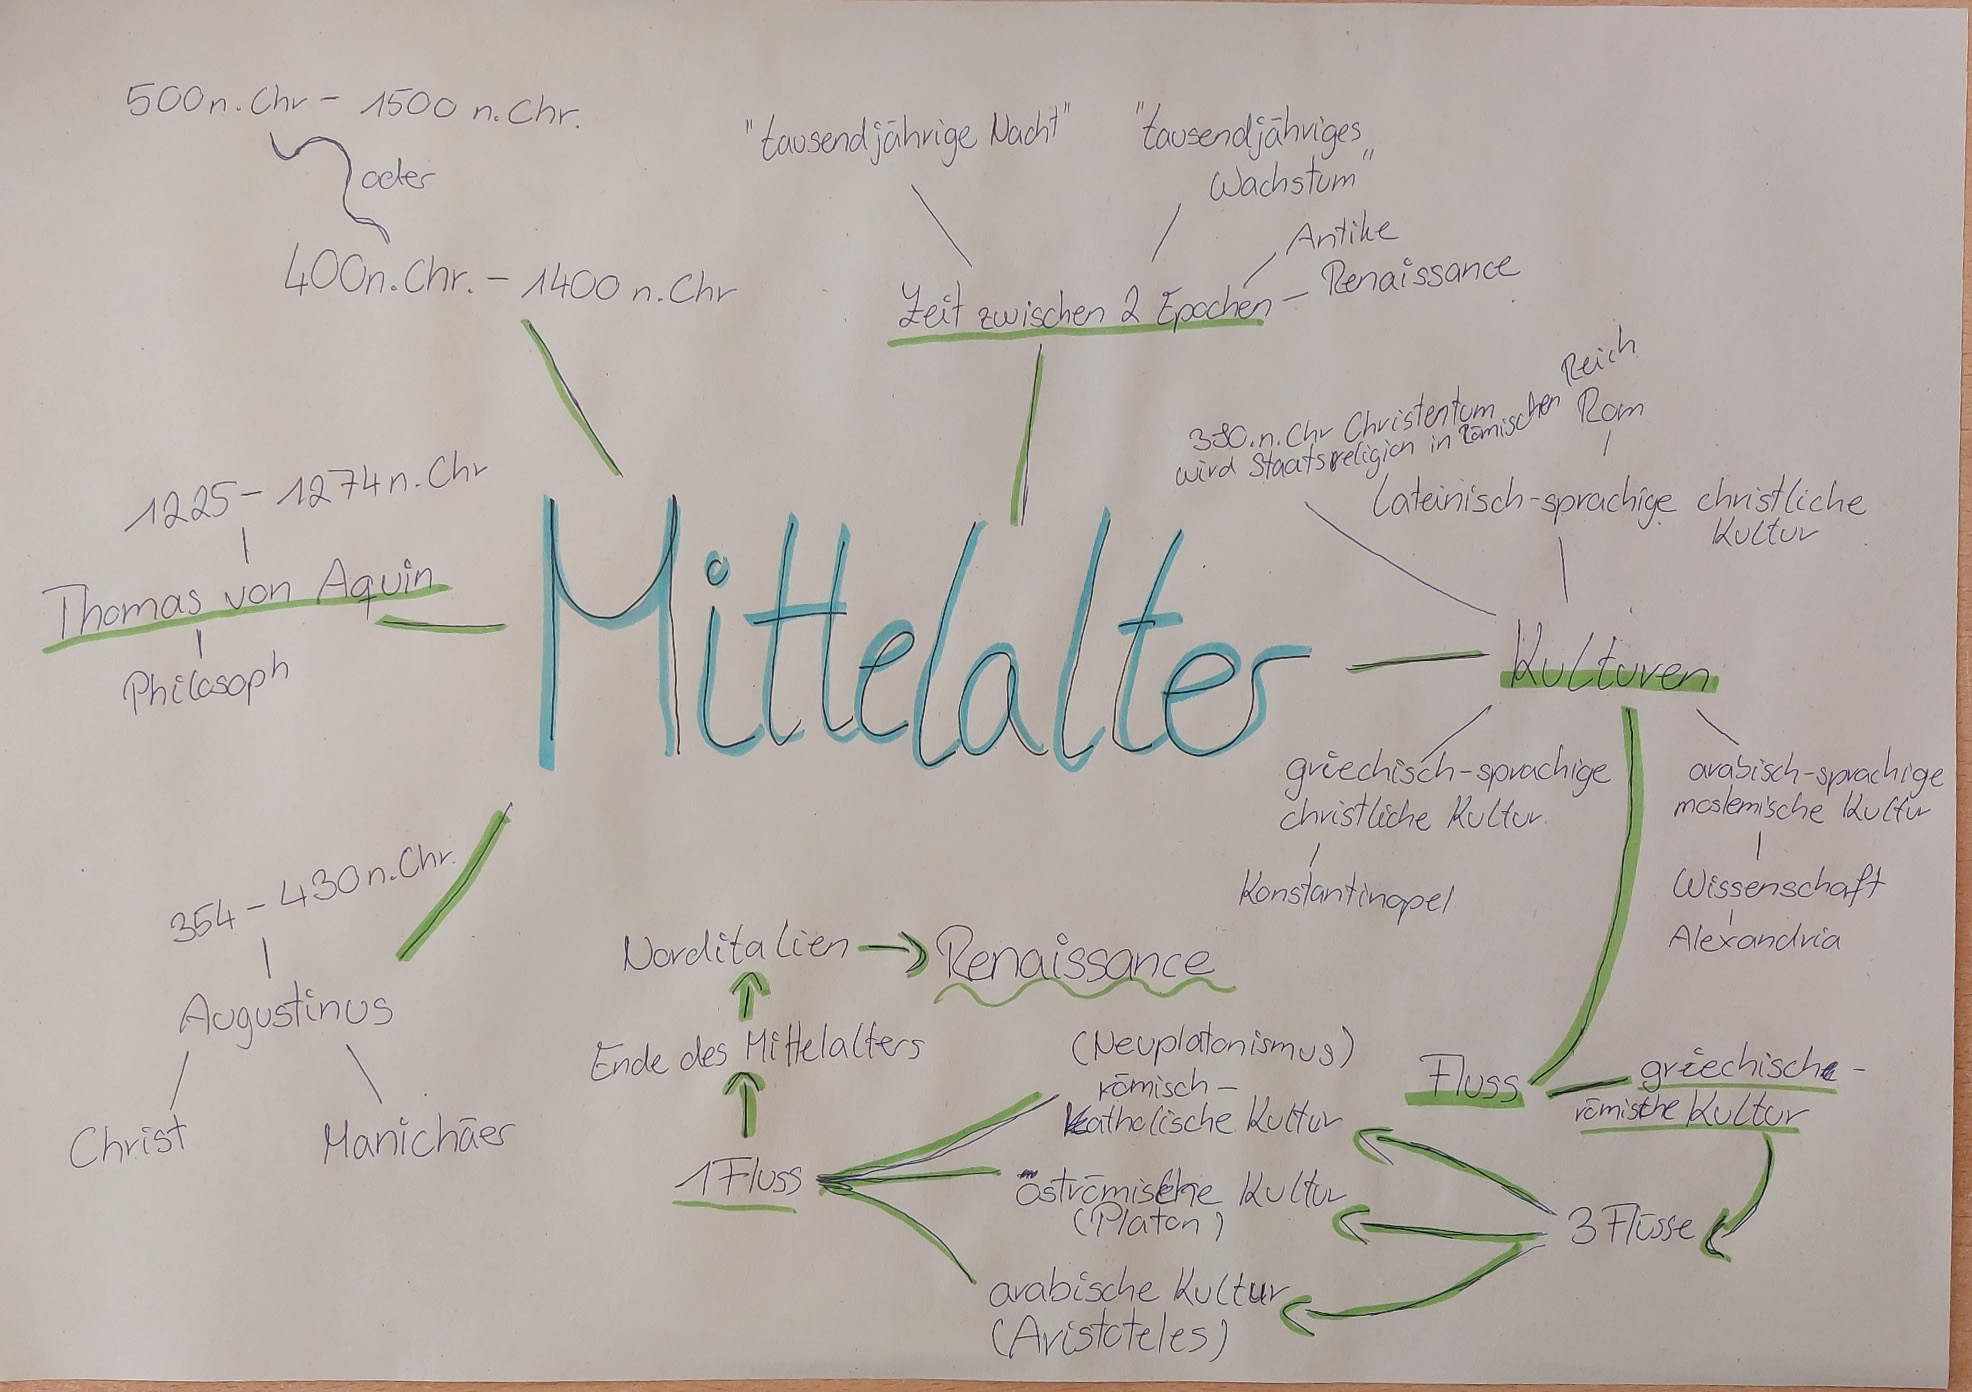 500 n. Chr - 1500 n. Chr.
oder
400 n. Chr. - 1400 n. Chr
"tausendjährige Nacht"
"tausendjähriges
Wachstum"
Antike
Renaissance
Zeit zwischen 2 Epochen
1225 - 1274 n. Chr
Thomas von Aquin
Philosoph
Mittelalter
380.n. Chr Christentum
wird Staatsreligion in Römischen Reich
Rom
Lateinisch-sprachige christliche
Kultur
Kulturen
griechisch-sprachige
christliche Kultur.
Konstantinopel
arabisch-sprachige
moslemische Kultur
Wissenschaft
Alexandria
354 - 430 n. Chr.
Augustinus
Christ
Manichäer
Norditalien
Renaissance
Ende des Mittelalters
1 Fluss
(Neuplatonismus)
römisch-
katholische Kultur
oströmische Kultur
(Platon)
arabische Kultur
(Aristoteles)
Fluss
griechische-
römische Kultur
3 Flüsse